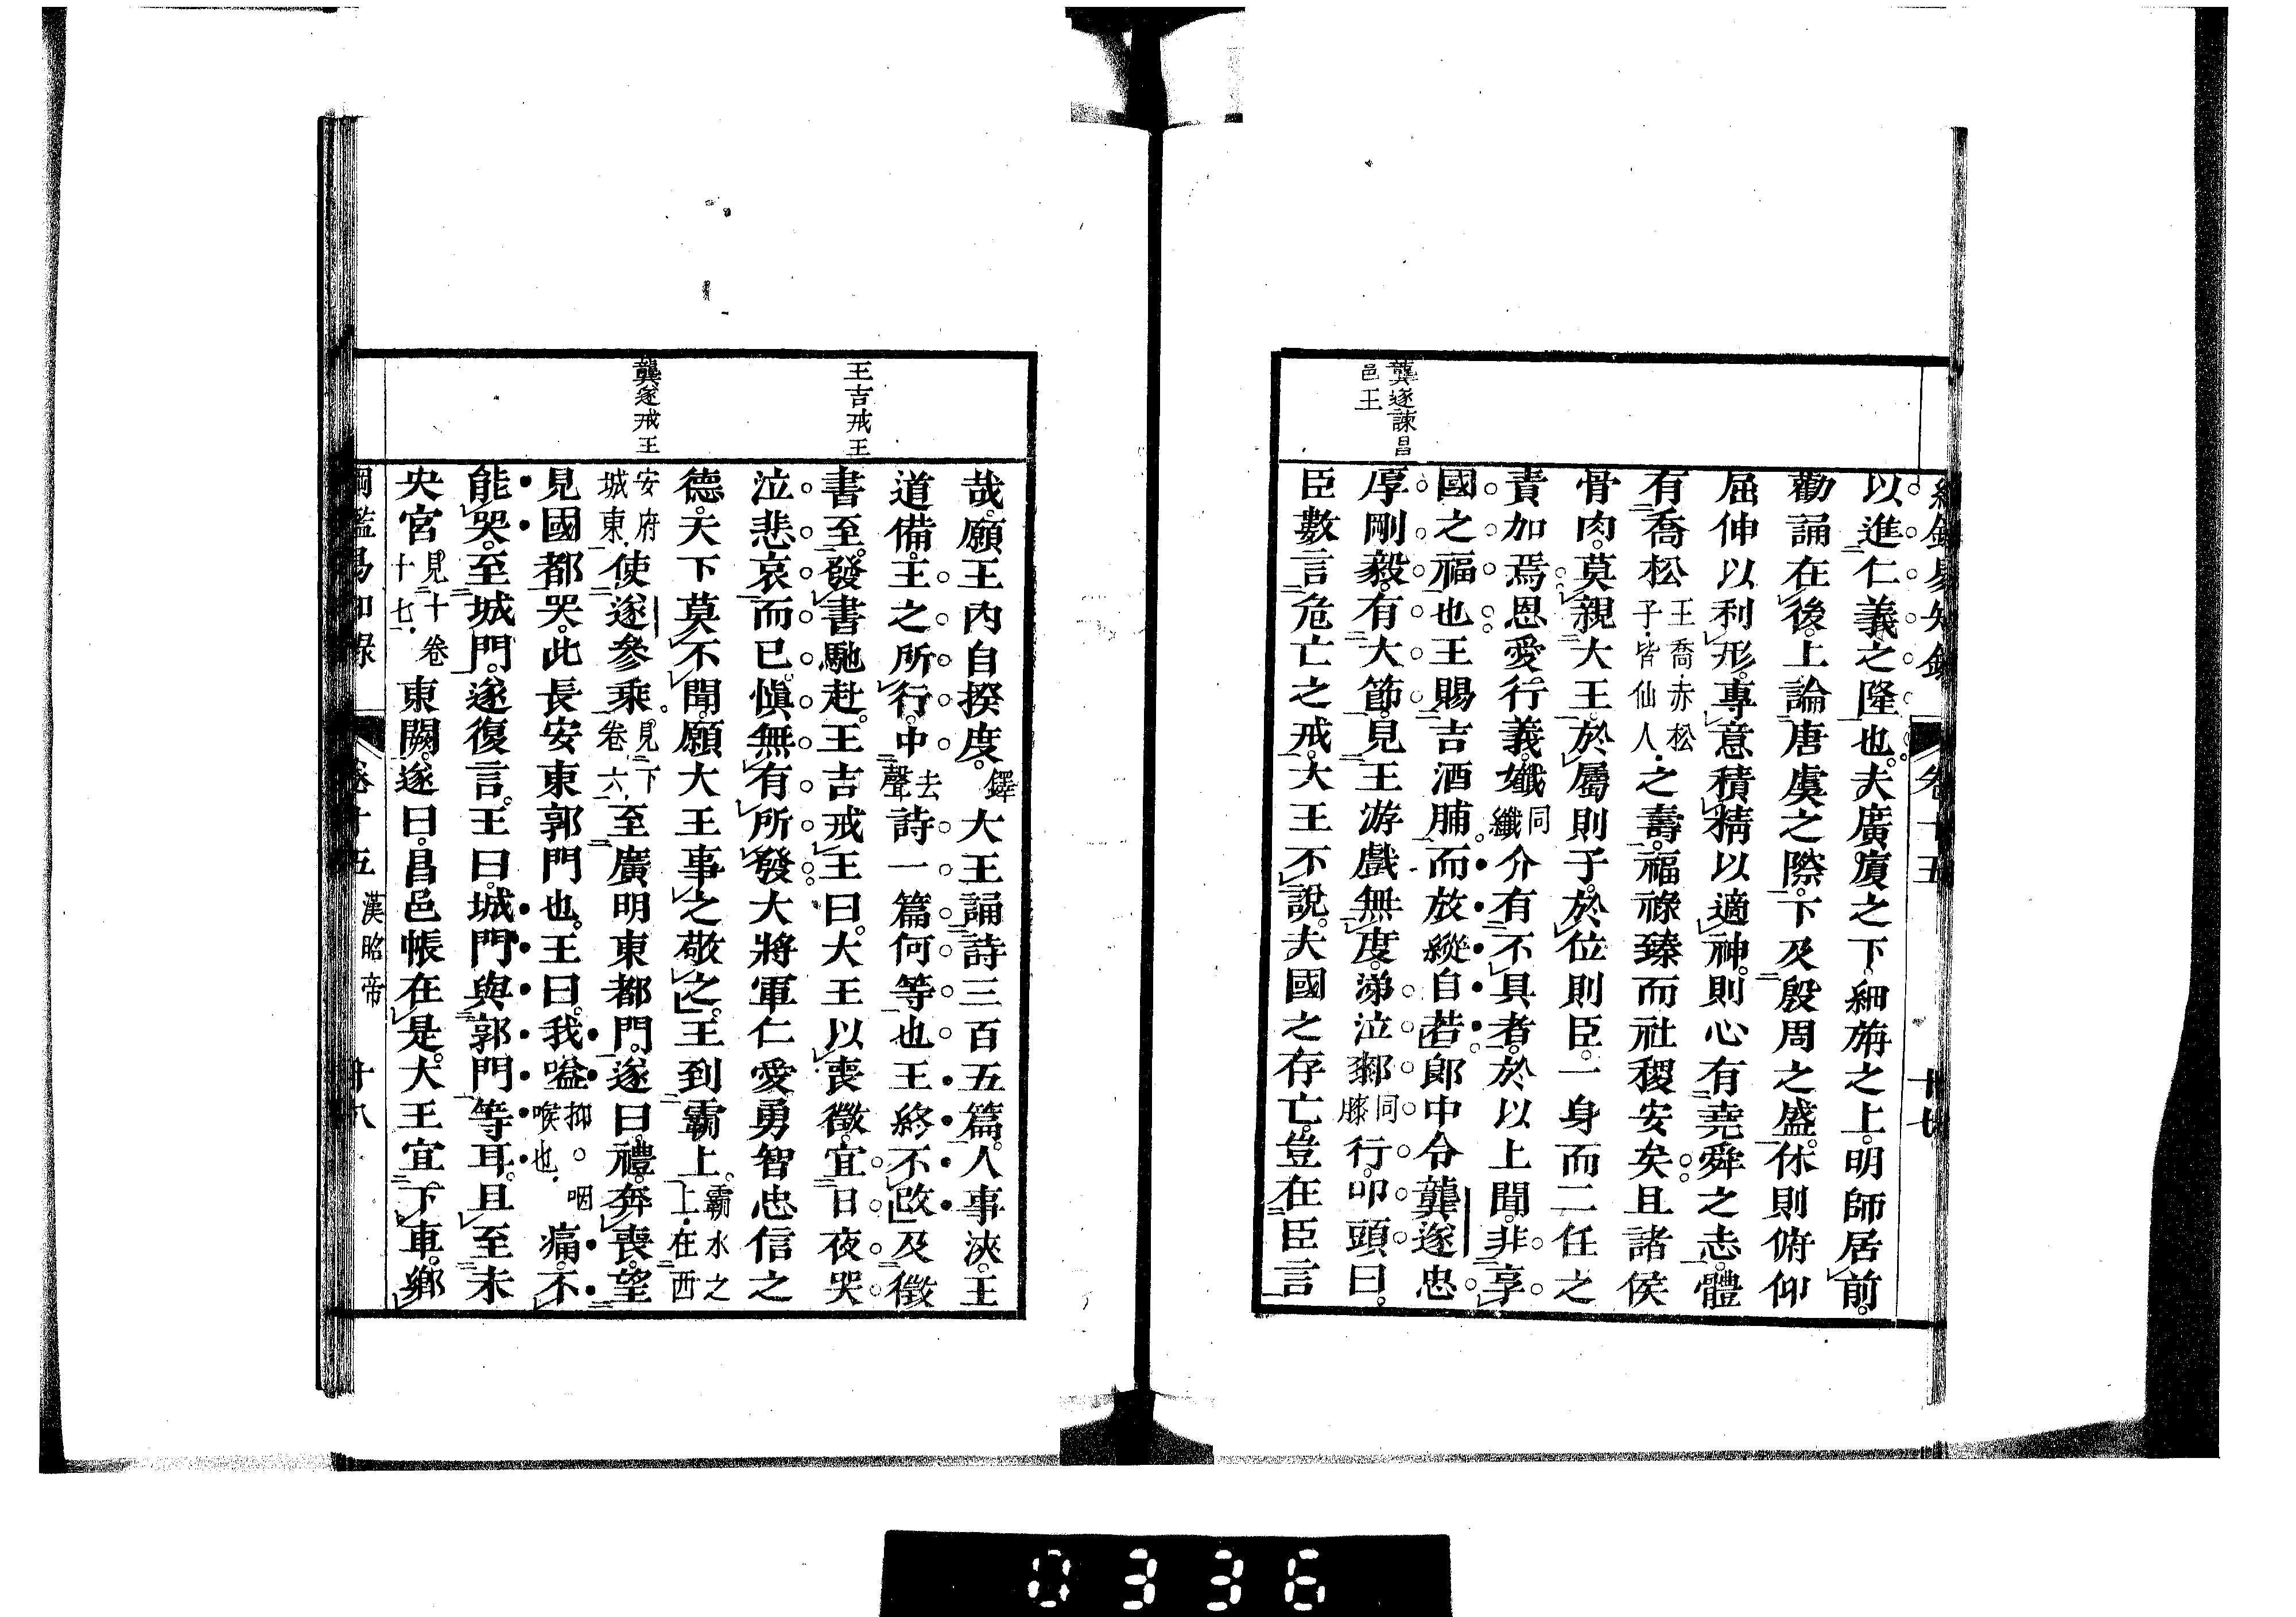 綱鑑易知錄 卷十五 十七
以進仁義之隆也夫廣廈之下細旃之上明師居前
勸誦在後上論唐虞之際下及殷周之盛休則俯仰
屈伸以利形專意積精以適神則心有堯舜之志體
有喬松王喬赤松子皆仙人之壽福祿臻而社稷安矣且諸侯
骨肉莫親大王於屬則子於位則臣一身而二任之
責加焉恩愛行義孅同纖介有不具者於以上聞非享
國之福也王賜吉酒脯而放縱自若郎中令龔遂忠
龔遂諫昌
邑王
厚剛毅有大節見王游戲無度涕泣厀同膝行叩頭曰
臣數言危亡之戒大王不說夫國之存亡豈在臣言
哉願王內自揆度鐸大王誦詩三百五篇人事浹王
道備王之所行中去聲詩一篇何等也王終不改及徵
王吉戒王
書至發書馳赴王吉戒王曰大王以喪徵宜日夜哭
泣悲哀而已愼無有所發大將軍仁愛勇智忠信之
德天下莫不聞願大王事之敬之王到霸上霸水之上在西
龔遂戒王
安府城東使遂參乘見下卷六至廣明東都門遂曰禮奔喪望
見國都哭此長安東郭門也王曰我嗌抑咽喉也痛不
能哭至城門遂復言王曰城門與郭門等耳且至未
央宮見十卷十七東闕遂曰昌邑帳在是大王宜下車鄉
綱鑑易知錄 卷十五 漢昭帝 十八
0336